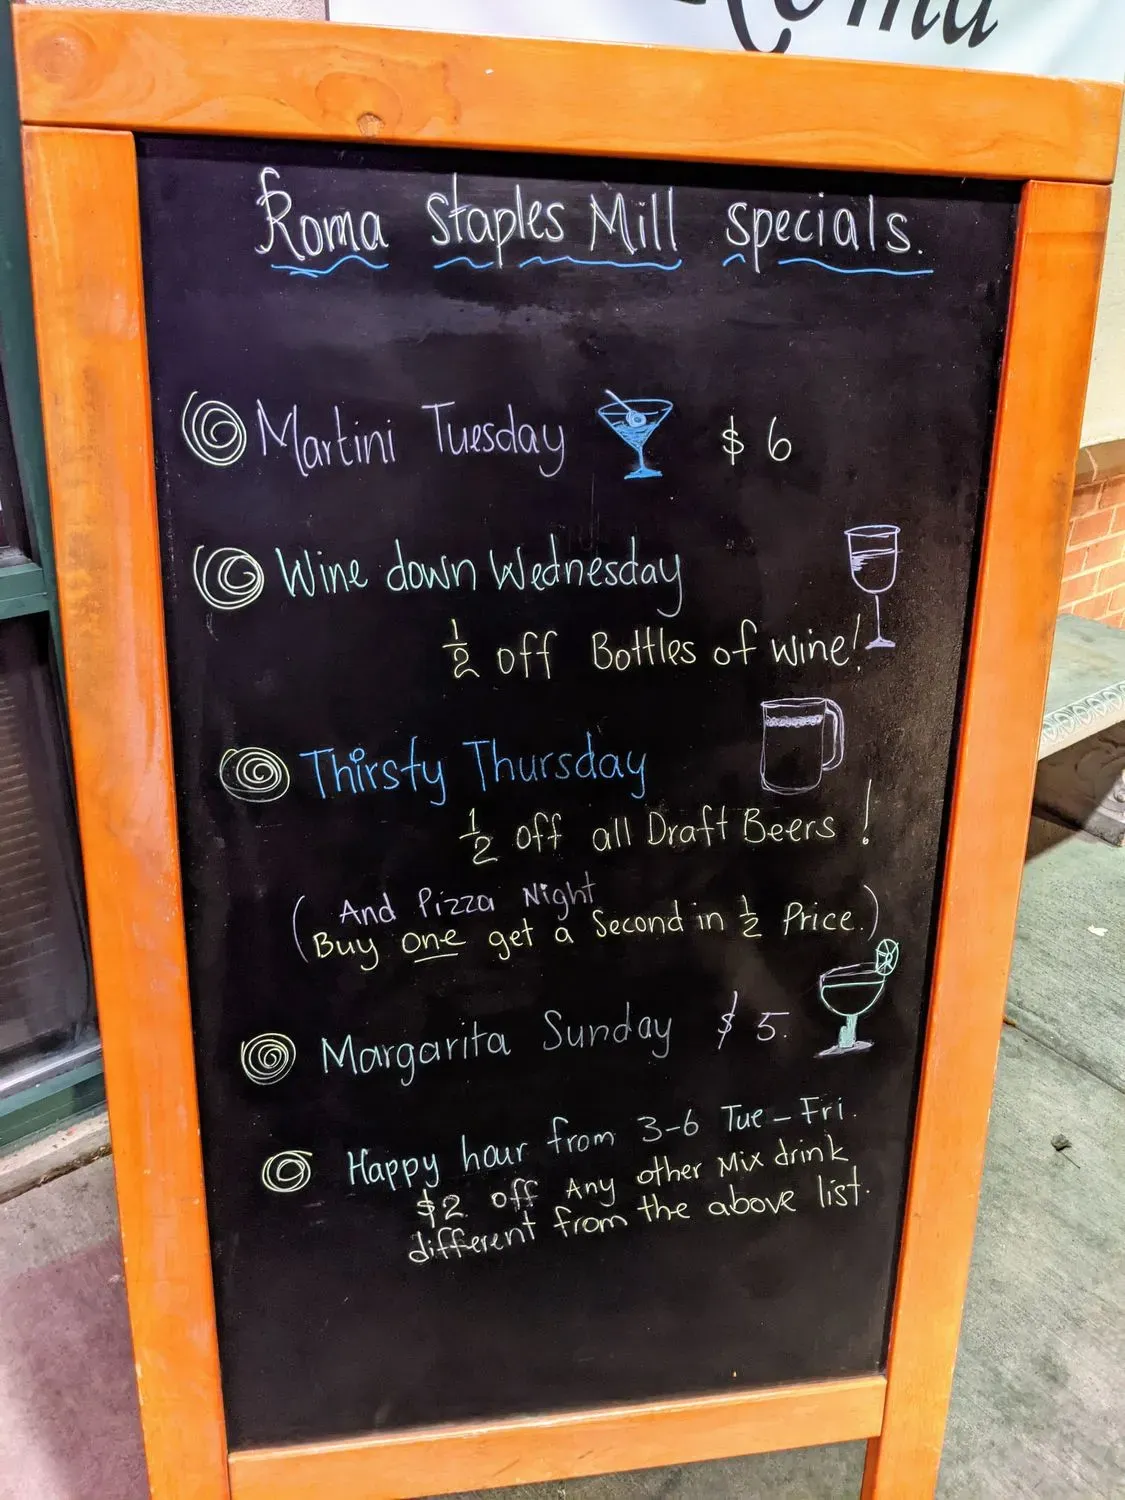 Roma
Roma Staples Mill specials.
Martini Tuesday $6
Wine down Wednesday
½ off Bottles of wine!
Thirsty Thursday
½ off all Draft Beers !
(And Pizza Night
Buy one get a Second in ½ Price.)
Margarita Sunday $5.
Happy hour from 3-6 Tue - Fri.
$2 off Any other Mix drink
different from the above list.